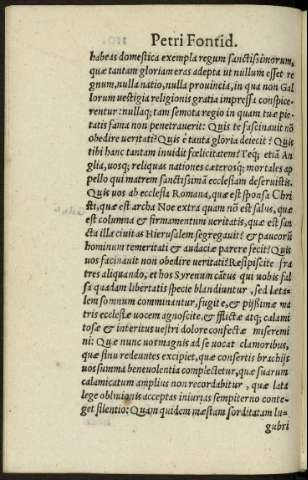 Petri Fontid.
habeas domestica exempla regum sanctissimorum,
quæ tantam gloriam eras adepta ut nullum esset re
gnum, nulla natio, nulla prouincia, in qua non Gal
lorum uestigia religionis gratia impressa conspice-
rentur: nullaq; tam semota regio in quam tuæ pie-
tatis fama non penetrauerit: Quis te fascinauit nō
obedire ueritati? Quis è tanta gloria deiecit? Quis
tibi hanc tantam inuidit fœlicitatem? Teq; etiā An
glia, uosq; reliquas nationes cæterosq; mortales ap
pello qui matrem sanctissimā ecclesiam deseruistis.
Quis uos ab ecclesia Romana, quæ est sponsa Chri
sti, quæ est archa Noe extra quam nō est salus, quæ
est columna & firmamentum ueritatis, quæ est san
cta illa ciuitas Hierusalem segregauit? & paucorū
hominum temeritati & audaciæ parere fecit? Quis
uos facinauit non obedire ueritati? Resipiscite fra
tres aliquando, et hos Syrenum cātus qui uobis fal
sa quadam libertatis specie blandiuntur, sed læta-
lem somnum comminantur, fugite, & pijssimæ ma
tris ecclesiæ uocem agnoscite, & afflictæ atq; calami
tosæ & interitus uestri dolore confectæ miseremi
ni: Quæ nunc uos magnis ad se uocat clamoribus,
quæ sinu redeuntes excipiet, quæ consertis brachijs
uos summa beneuolentia complectetur, quæ suarum
calamitatum amplius non recordabitur, quæ lata
lege obliuionis acceptas iniurias sempiterno conte-
get silentio: Quam quidem mæstam sorditatam lu-
gubri